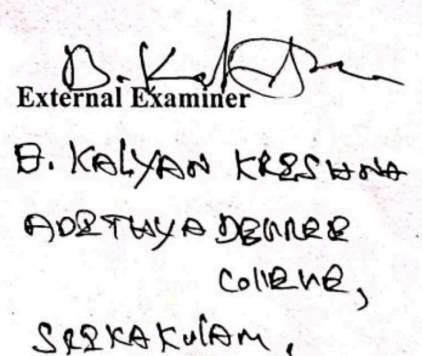 B. Kal
External Examiner
B. KALYAN KRISHNA
ADITHYA DEGREE
COLLEGE,
SRIKAKULAM.